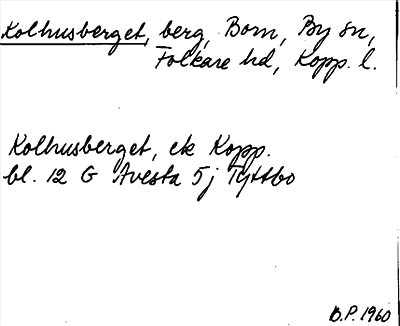 Kolhusberget, berg, Born, By sn,
Folkare hd, Kopp. l.
Kolhusberget, ek Kopp.
bl. 12 G Avesta 5j Tyttbo
B.P. 1960